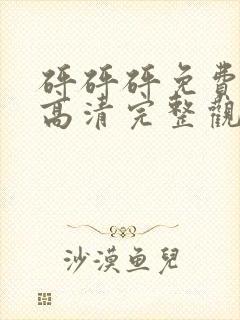 砰砰砰免費
高清完整觀
沙漠鱼兒